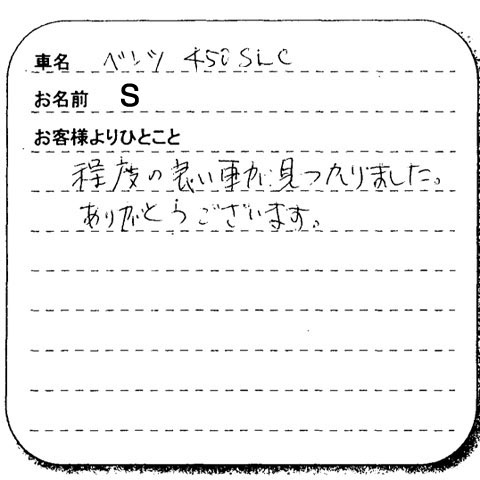 車名 ベンツ 450SLC
お名前 S
お客様よりひとこと
程度の良い車が見つかりました。
ありがとうございます。